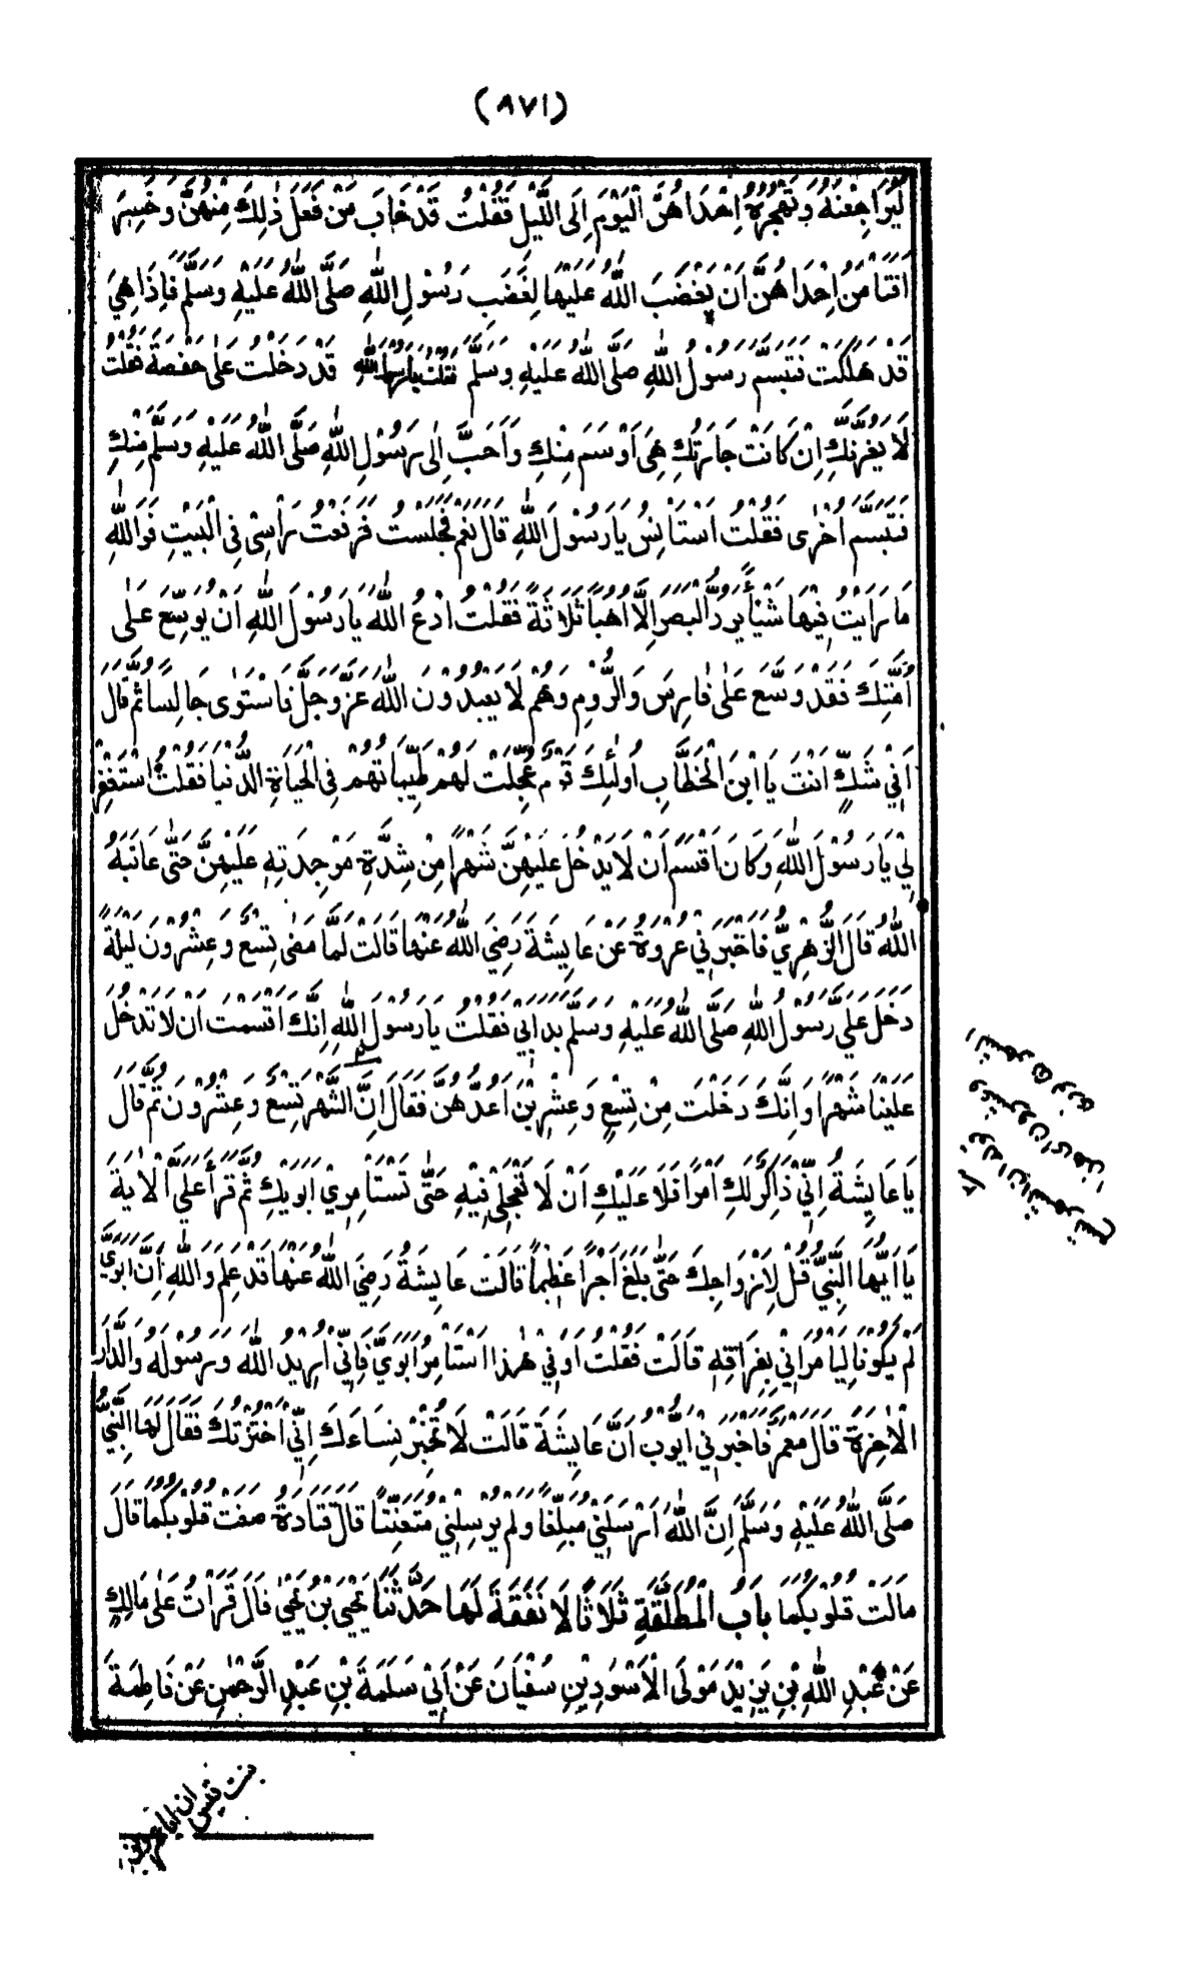 (٨٧١)
لَيُرَاجِعْنَهُ وَتَهْجُرُهُ اِحْدَاهُنَّ الْيَوْمَ اِلَى اللَّيْلِ فَقُلْتُ قَدْ خَابَ مَنْ فَعَلَ ذٰلِكَ مِنْهُنَّ وَخَسِرَ
اَفَتَأْمَنُ اِحْدَاهُنَّ اَنْ يَغْضَبَ اللّٰهُ عَلَيْهَا لِغَضَبِ رَسُوْلِ اللّٰهِ صَلَّى اللّٰهُ عَلَيْهِ وَسَلَّمَ فَاِذَا هِيَ
قَدْ هَلَكَتْ فَتَبَسَّمَ رَسُوْلُ اللّٰهِ صَلَّى اللّٰهُ عَلَيْهِ وَسَلَّمَ فَقُلْتُ يَا رَسُوْلَ اللّٰهِ قَدْ دَخَلْتُ عَلٰى حَفْصَةَ فَقُلْتُ
لَا يَغُرَّنَّكِ اِنْ كَانَتْ جَارَتُكِ هِىَ اَوْسَمَ مِنْكِ وَاَحَبَّ اِلٰى رَسُوْلِ اللّٰهِ صَلَّى اللّٰهُ عَلَيْهِ وَسَلَّمَ مِنْكِ
فَتَبَسَّمَ اُخْرٰى فَقُلْتُ اَسْتَأْنِسُ يَا رَسُوْلَ اللّٰهِ قَالَ نَعَمْ فَجَلَسْتُ فَرَفَعْتُ رَأْسِىْ فِى الْبَيْتِ فَوَاللّٰهِ
مَا رَاَيْتُ فِيْهَا شَيْأً يَرُدُّ الْبَصَرَ اِلَّا اُهُبًا ثَلَاثَةً فَقُلْتُ ادْعُ اللّٰهَ يَا رَسُوْلَ اللّٰهِ اَنْ يُوَسِّعَ عَلٰى
اُمَّتِكَ فَقَدْ وَسَّعَ عَلٰى فَارِسَ وَالرُّوْمِ وَهُمْ لَا يَعْبُدُوْنَ اللّٰهَ عَزَّوَجَلَّ فَاسْتَوٰى جَالِسًا ثُمَّ قَالَ
اَفِيْ شَكٍّ اَنْتَ يَا ابْنَ الْخَطَّابِ اُولٰئِكَ قَوْمٌ عُجِّلَتْ لَهُمْ طَيِّبَاتُهُمْ فِى الْحَيَاةِ الدُّنْيَا فَقُلْتُ اسْتَغْفِرْ
لِيْ يَا رَسُوْلَ اللّٰهِ وَكَانَ اَقْسَمَ اَنْ لَا يَدْخُلَ عَلَيْهِنَّ شَهْرًا مِنْ شِدَّةِ مَوْجِدَتِهٖ عَلَيْهِنَّ حَتّٰى عَاتَبَهُ
اللّٰهُ قَالَ الزُّهْرِيُّ فَاَخْبَرَنِيْ عُرْوَةُ عَنْ عَايِشَةَ رَضِيَ اللّٰهُ عَنْهَا قَالَتْ لَمَّا مَضٰى تِسْعٌ وَعِشْرُوْنَ لَيْلَةً
دَخَلَ عَلَيَّ رَسُوْلُ اللّٰهِ صَلَّى اللّٰهُ عَلَيْهِ وَسَلَّمَ بَدَأَ بِيْ فَقُلْتُ يَا رَسُوْلَ اللّٰهِ اِنَّكَ اَقْسَمْتَ اَنْ لَا تَدْخُلَ
عَلَيْنَا شَهْرًا وَاِنَّكَ دَخَلْتَ مِنْ تِسْعٍ وَعِشْرِيْنَ اَعُدُّهُنَّ فَقَالَ اِنَّ الشَّهْرَ تِسْعٌ وَعِشْرُوْنَ ثُمَّ قَالَ
يَا عَايِشَةُ اِنِّيْ ذَاكِرٌ لَكِ اَمْرًا فَلَا عَلَيْكِ اَنْ لَا تَعْجَلِىْ فِيْهِ حَتّٰى تَسْتَأْمِرِيْ اَبَوَيْكِ ثُمَّ قَرَأَ عَلَيَّ الْاٰيَةَ
يَا اَيُّهَا النَّبِيُّ قُلْ لِاَزْوَاجِكَ حَتّٰى بَلَغَ اَجْرًا عَظِيْمًا قَالَتْ عَايِشَةُ رَضِيَ اللّٰهُ عَنْهَا قَدْ عَلِمَ وَاللّٰهِ اَنَّ اَبَوَيَّ
لَمْ يَكُوْنَا لِيَأْمُرَانِيْ بِفِرَاقِهٖ قَالَتْ فَقُلْتُ اَوَفِيْ هٰذَا اَسْتَأْمِرُ اَبَوَيَّ فَاِنِّيْ اُرِيْدُ اللّٰهَ وَرَسُوْلَهُ وَالدَّارَ
الْاٰخِرَةَ قَالَ مَعْمَرٌ فَاَخْبَرَنِيْ اَيُّوْبُ اَنَّ عَايِشَةَ قَالَتْ لَا تُخْبِرْ نِسَاءَكَ اِنِّي اخْتَرْتُكَ فَقَالَ لَهَا النَّبِيُّ
صَلَّى اللّٰهُ عَلَيْهِ وَسَلَّمَ اِنَّ اللّٰهَ اَرْسَلَنِيْ مُبَلِّغًا وَلَمْ يُرْسِلْنِيْ مُتَعَنِّتًا قَالَ قَتَادَةُ صَغَتْ قُلُوْبُكُمَا قَالَ
مَالَتْ قُلُوْبُكُمَا بَابُ الْمُطَلَّقَةِ ثَلَاثًا لَا نَفَقَةَ لَهَا حَدَّثَنَا يَحْيَى بْنُ يَحْيٰى قَالَ قَرَأْتُ عَلٰى مَالِكٍ
عَنْ عَبْدِ اللّٰهِ بْنِ يَزِيْدَ مَوْلَى الْاَسْوَدِ بْنِ سُفْيَانَ عَنْ اَبِيْ سَلَمَةَ بْنِ عَبْدِ الرَّحْمٰنِ عَنْ فَاطِمَةَ
بنت قيس ان ابا عمرو بن